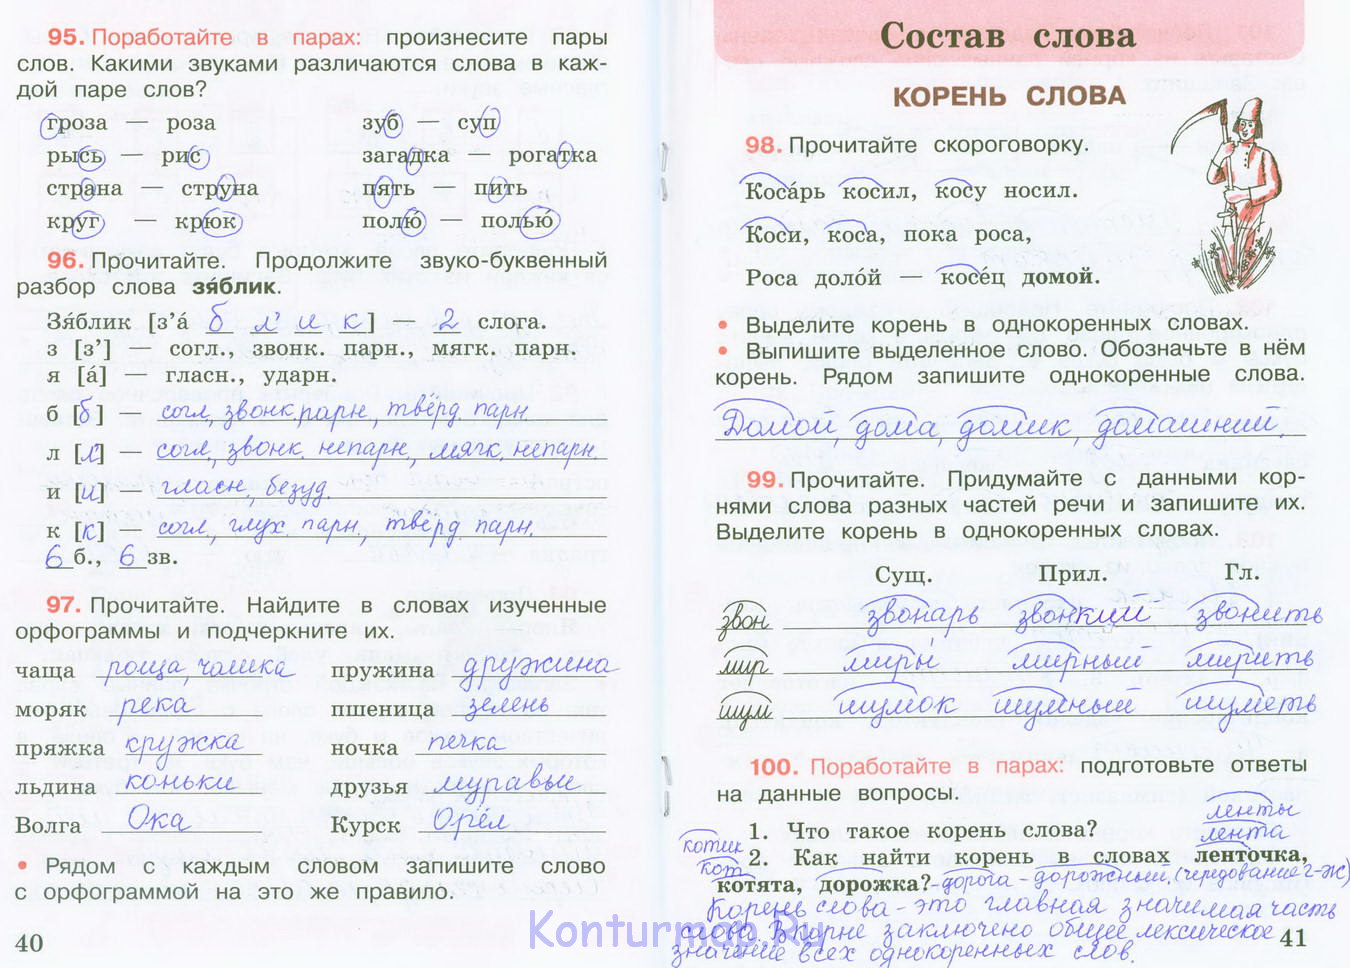 95. Поработайте в парах: произнесите пары
слов. Какими звуками различаются слова в каж-
дой паре слов?
гроза — роза зуб — суп
рысь — рис загадка — рогатка
страна — струна пять — пить
круг — крюк полю́ — полью́
96. Прочитайте. Продолжите звуко-буквенный
разбор слова зя́блик.
Зя́блик [з’а́ б л’ и к] 2 слога.
з [з’] — согл., звонк. парн., мягк. парн.
я [а́] — гласн., ударн.
б [б] — согл., звонк. парн., твёрд. парн.
л [л’] — согл., звонк. непарн., мягк. непарн.
и [и] — гласн., безуд.
к [к] — согл., глух. парн., твёрд. парн.
6 б., 6 зв.
97. Прочитайте. Найдите в словах изученные
орфограммы и подчеркните их.
чаща роща, чашка пружина дружина
моряк река пшеница зелень
пряжка кружка ночка печка
льдина коньки друзья муравьи
Волга Ока Курск Орёл
• Рядом с каждым словом запишите слово
с орфограммой на это же правило.
40
Состав слова
КОРЕНЬ СЛОВА
98. Прочитайте скороговорку.
Коса́рь косил, косу носил.
Коси, коса, пока роса,
Роса доло́й — косе́ц домой.
• Выделите корень в однокоренных словах.
• Выпишите выделенное слово. Обозначьте в нём
корень. Рядом запишите однокоренные слова.
Домой, дома, домик, домашний.
99. Прочитайте. Придумайте с данными кор-
нями слова разных частей речи и запишите их.
Выделите корень в однокоренных словах.
Сущ. Прил. Гл.
звон звонарь звонкий звонить
мир миры́ мирный мирить
шум шумок шумный шуметь
100. Поработайте в парах: подготовьте ответы
на данные вопросы.
ленты
1. Что такое корень слова? лента
котик
2. Как найти корень в словах ленточка,
кот
котята, дорожка? - дорога - дорожный, (чередование г-ж)
Корень слова - это главная значимая часть
слова. В корне заключено общее лексическое
значение всех однокоренных слов.
Konturmap.Ru
41